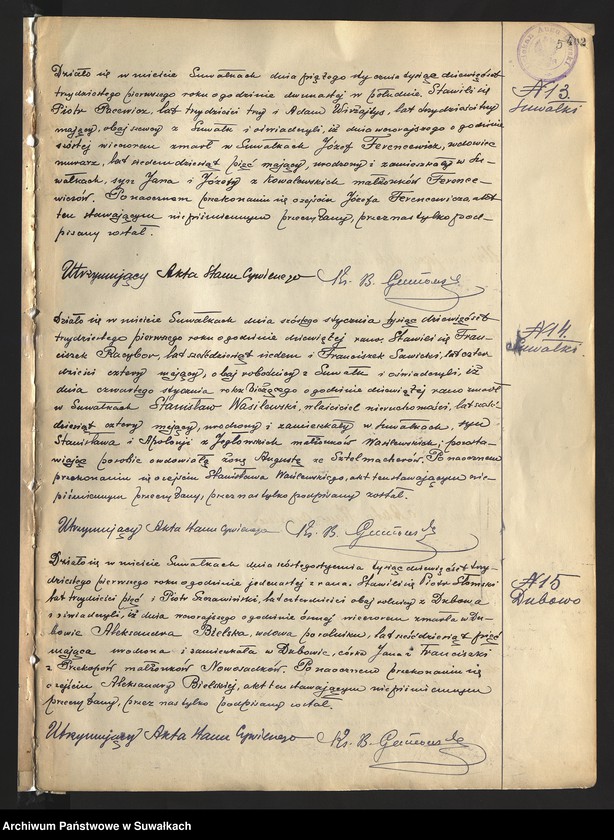 402
№ 13
Suwałki
Działo się w mieście Suwałkach dnia piątego stycznia tysiąc dziewięćset
trzydziestego pierwszego roku o godzinie dwunastej w południe. Stawili się
Piotr Pacewicz, lat trzydzieści trzy i Adam lat trzydzieści trzy
mający, obaj z Suwałk i oświadczyli, iż dnia wczorajszego o godzinie
szóstej wieczorem zmarł w Suwałkach Józef Ferencewicz, wdowiec
murarz, lat siedemdziesiąt pięć mający, urodzony i zamieszkały w Su-
wałkach, syn Jana i Józefy z Kowalewskich małżonków Ference-
wiczów. Po naocznem przekonaniu się o zejściu Józefa Ferencewicza, akt
ten stawającym niepiśmiennym przeczytany, przez nas tylko pod-
pisany został.
Utrzymujący Akta Stanu Cywilnego Ks. B.
№ 14
Suwałki
Działo się w mieście Suwałkach dnia szóstego stycznia tysiąc dziewięćset
trzydziestego pierwszego roku o godzinie dziewiątej rano. Stawili się Fran-
ciszek Racybor, lat sześćdziesiąt siedem i Franciszek Sawicki, lat czter-
dzieści cztery mający, obaj robotnicy z Suwałk i oświadczyli, iż
dnia czwartego stycznia roku bieżącego o godzinie dziewiątej rano zmarł
w Suwałkach Stanisław Wasilewski, właściciel nieruchomości, lat sześć-
dziesiąt cztery mający, urodzony i zamieszkały w Suwałkach, syn
Stanisława i Apolonji z małżonków Wasilewskich; pozosta-
wiając po sobie owdowiałą żonę Augustę ze Sztelmacherów. Po naocznem
przekonaniu się o zejściu Stanisława Wasilewskiego, akt ten stawającym nie-
piśmiennym przeczytany, przez nas tylko podpisany został.
Utrzymujący Akta Stanu Cywilnego Ks. B.
№ 15
Dubowo
Działo się w mieście Suwałkach dnia szóstego stycznia tysiąc dziewięćset trzy-
dziestego pierwszego roku o godzinie jedenastej z rana. Stawili się Piotr Słomski
lat trzydzieści pięć i Piotr lat czterdzieści obaj rolnicy z Dubowa
i oświadczyli, iż dnia wczorajszego o godzinie ósmej wieczorem zmarła w Du-
bowie Aleksandra Bielska, wdowa po rolniku, lat sześćdziesiąt pięć
mająca urodzona i zamieszkała w Dubowie, córka Jana i Franciszki
z Prokopów małżonków Nowosadków. Po naocznem przekonaniu się
o zejściu Aleksandry Bielskiej, akt ten stawającym niepiśmiennym
przeczytany, przez nas tylko podpisany został.
Utrzymujący Akta Stanu Cywilnego Ks. B.
Archiwum Państwowe w Suwałkach